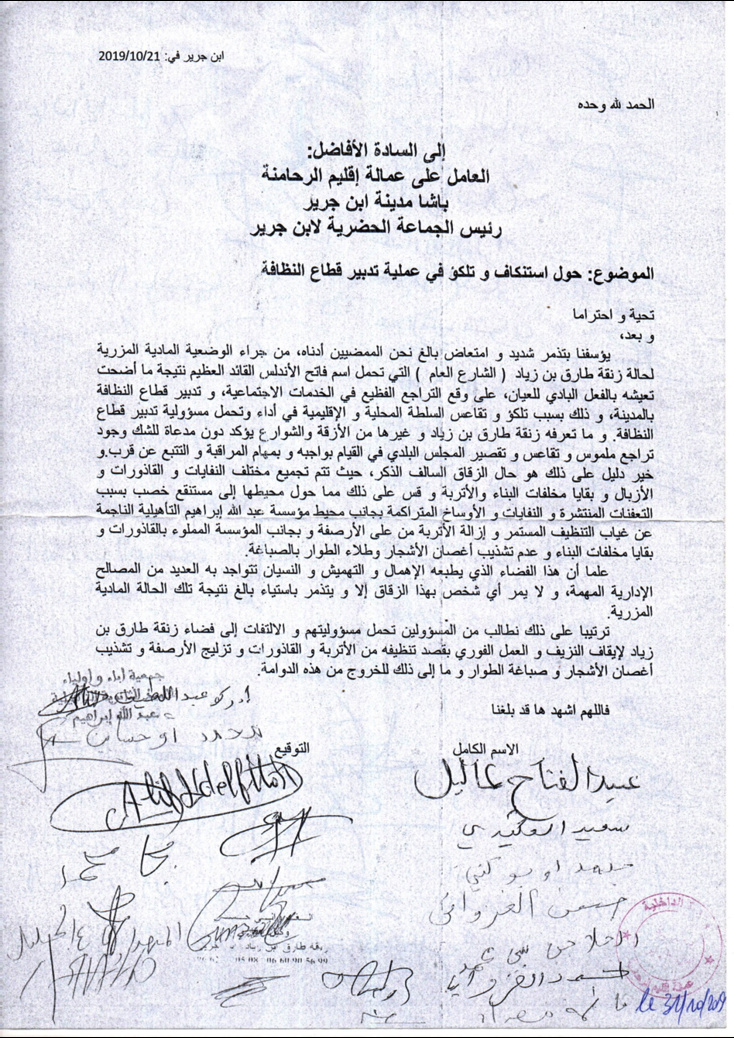 ابن جرير في: 2019/10/21
الحمد لله وحده
إلى السادة الأفاضل:
العامل على عمالة إقليم الرحامنة
باشا مدينة ابن جرير
رئيس الجماعة الحضرية لابن جرير
الموضوع: حول استنكاف و تلكؤ في عملية تدبير قطاع النظافة
تحية و احتراما
و بعد،
يؤسفنا بتذمر شديد و امتعاض بالغ نحن الممضيين أدناه، من جراء الوضعية المادية المزرية
لحالة زنقة طارق بن زياد ( الشارع العام ) التي تحمل اسم فاتح الأندلس القائد العظيم نتيجة ما أضحت
تعيشه بالفعل البادي للعيان، على وقع التراجع الفظيع في الخدمات الاجتماعية، و تدبير قطاع النظافة
بالمدينة، و ذلك بسبب تلكؤ و تقاعس السلطة المحلية و الإقليمية في أداء وتحمل مسؤولية تدبير قطاع
النظافة. و ما تعرفه زنقة طارق بن زياد و غيرها من الأزقة والشوارع يؤكد دون مدعاة للشك وجود
تراجع ملموس و تقاعس و تقصير المجلس البلدي في القيام بواجبه و بمهام المراقبة و التتبع عن قرب.و
خير دليل على ذلك هو حال الزقاق السالف الذكر، حيث تتم تجميع مختلف النفايات و القاذورات و
الأزبال و بقايا مخلفات البناء والأتربة و قس على ذلك مما حول محيطها إلى مستنقع خصب بسبب
التعفنات المنتشرة و النفايات و الأوساخ المتراكمة بجانب محيط مؤسسة عبد الله إبراهيم التأهيلية الناجمة
عن غياب التنظيف المستمر و إزالة الأتربة من على الأرصفة و بجانب المؤسسة المملوء بالقاذورات و
بقايا مخلفات البناء و عدم تشذيب أغصان الأشجار وطلاء الطوار بالصباغة.
علما أن هذا الفضاء الذي يطبعه الإهمال و التهميش و النسيان تتواجد به العديد من المصالح
الإدارية المهمة، و لا يمر أي شخص بهذا الزقاق إلا و يتذمر باستياء بالغ نتيجة تلك الحالة المادية
المزرية.
ترتيبا على ذلك نطالب من المسؤولين تحمل مسؤوليتهم و الالتفات إلى فضاء زنقة طارق بن
زياد لإيقاف النزيف و العمل الفوري بقصد تنظيفه من الأتربة و القاذورات و تزليج الأرصفة و تشذيب
أغصان الأشجار و صباغة الطوار و ما إلى ذلك للخروج من هذه الدوامة.
جمعية آباء و أولياء
عبد الله إبراهيم
فاللهم اشهد ها قد بلغنا
محمد
الاسم الكامل
التوقيع
عبد الفتاح عاليل
سعيد
حسن
الداخلية
زنقة طارق بن زياد
le 31/10/2019